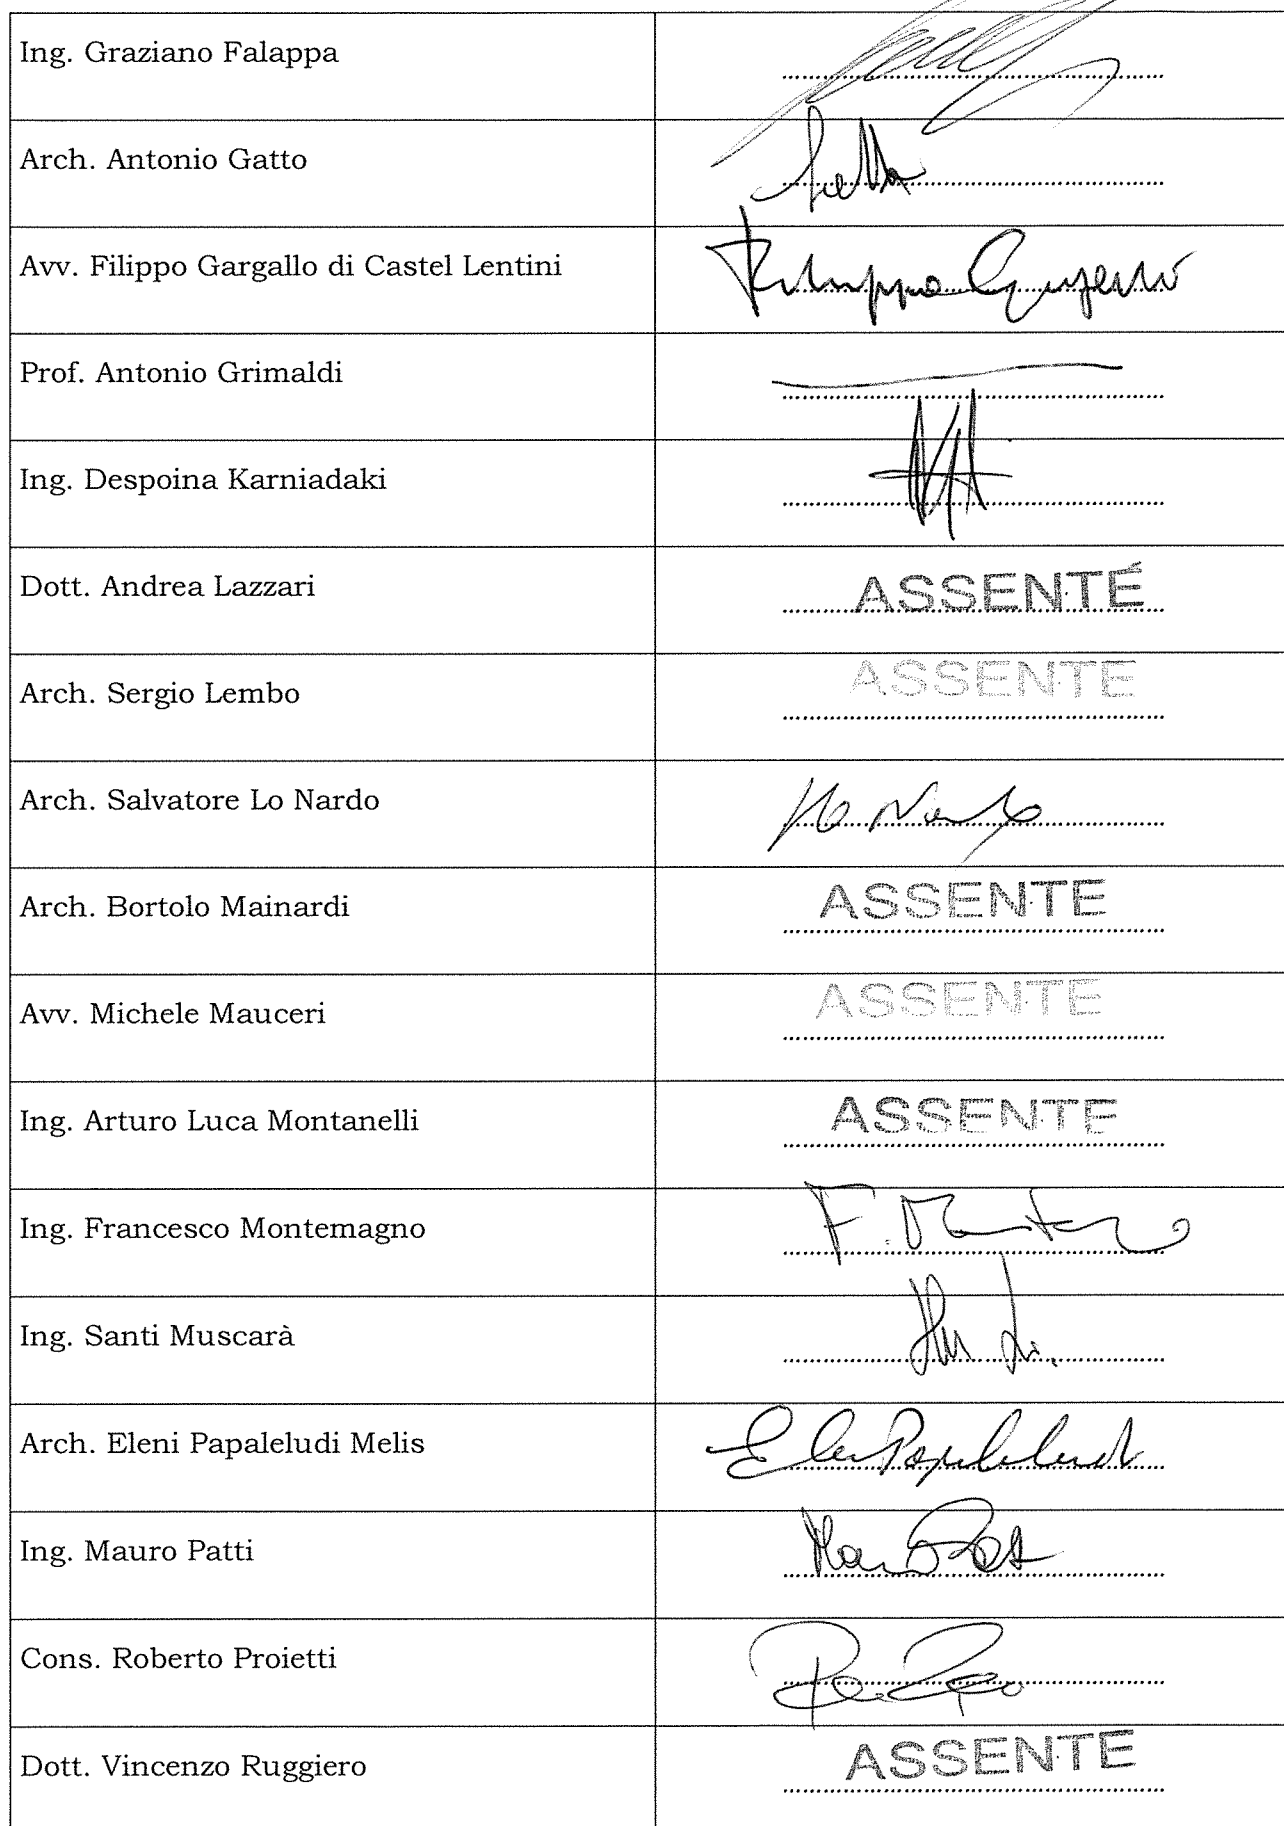 Ing. Graziano Falappa
Arch. Antonio Gatto
Avv. Filippo Gargallo di Castel Lentini
Filippo Gargallo
Prof. Antonio Grimaldi
Ing. Despoina Karniadaki
Dott. Andrea Lazzari
ASSENTE
Arch. Sergio Lembo
ASSENTE
Arch. Salvatore Lo Nardo
Arch. Bortolo Mainardi
ASSENTE
Avv. Michele Mauceri
ASSENTE
Ing. Arturo Luca Montanelli
ASSENTE
Ing. Francesco Montemagno
Ing. Santi Muscarà
Arch. Eleni Papaleludi Melis
Ing. Mauro Patti
Cons. Roberto Proietti
Dott. Vincenzo Ruggiero
ASSENTE